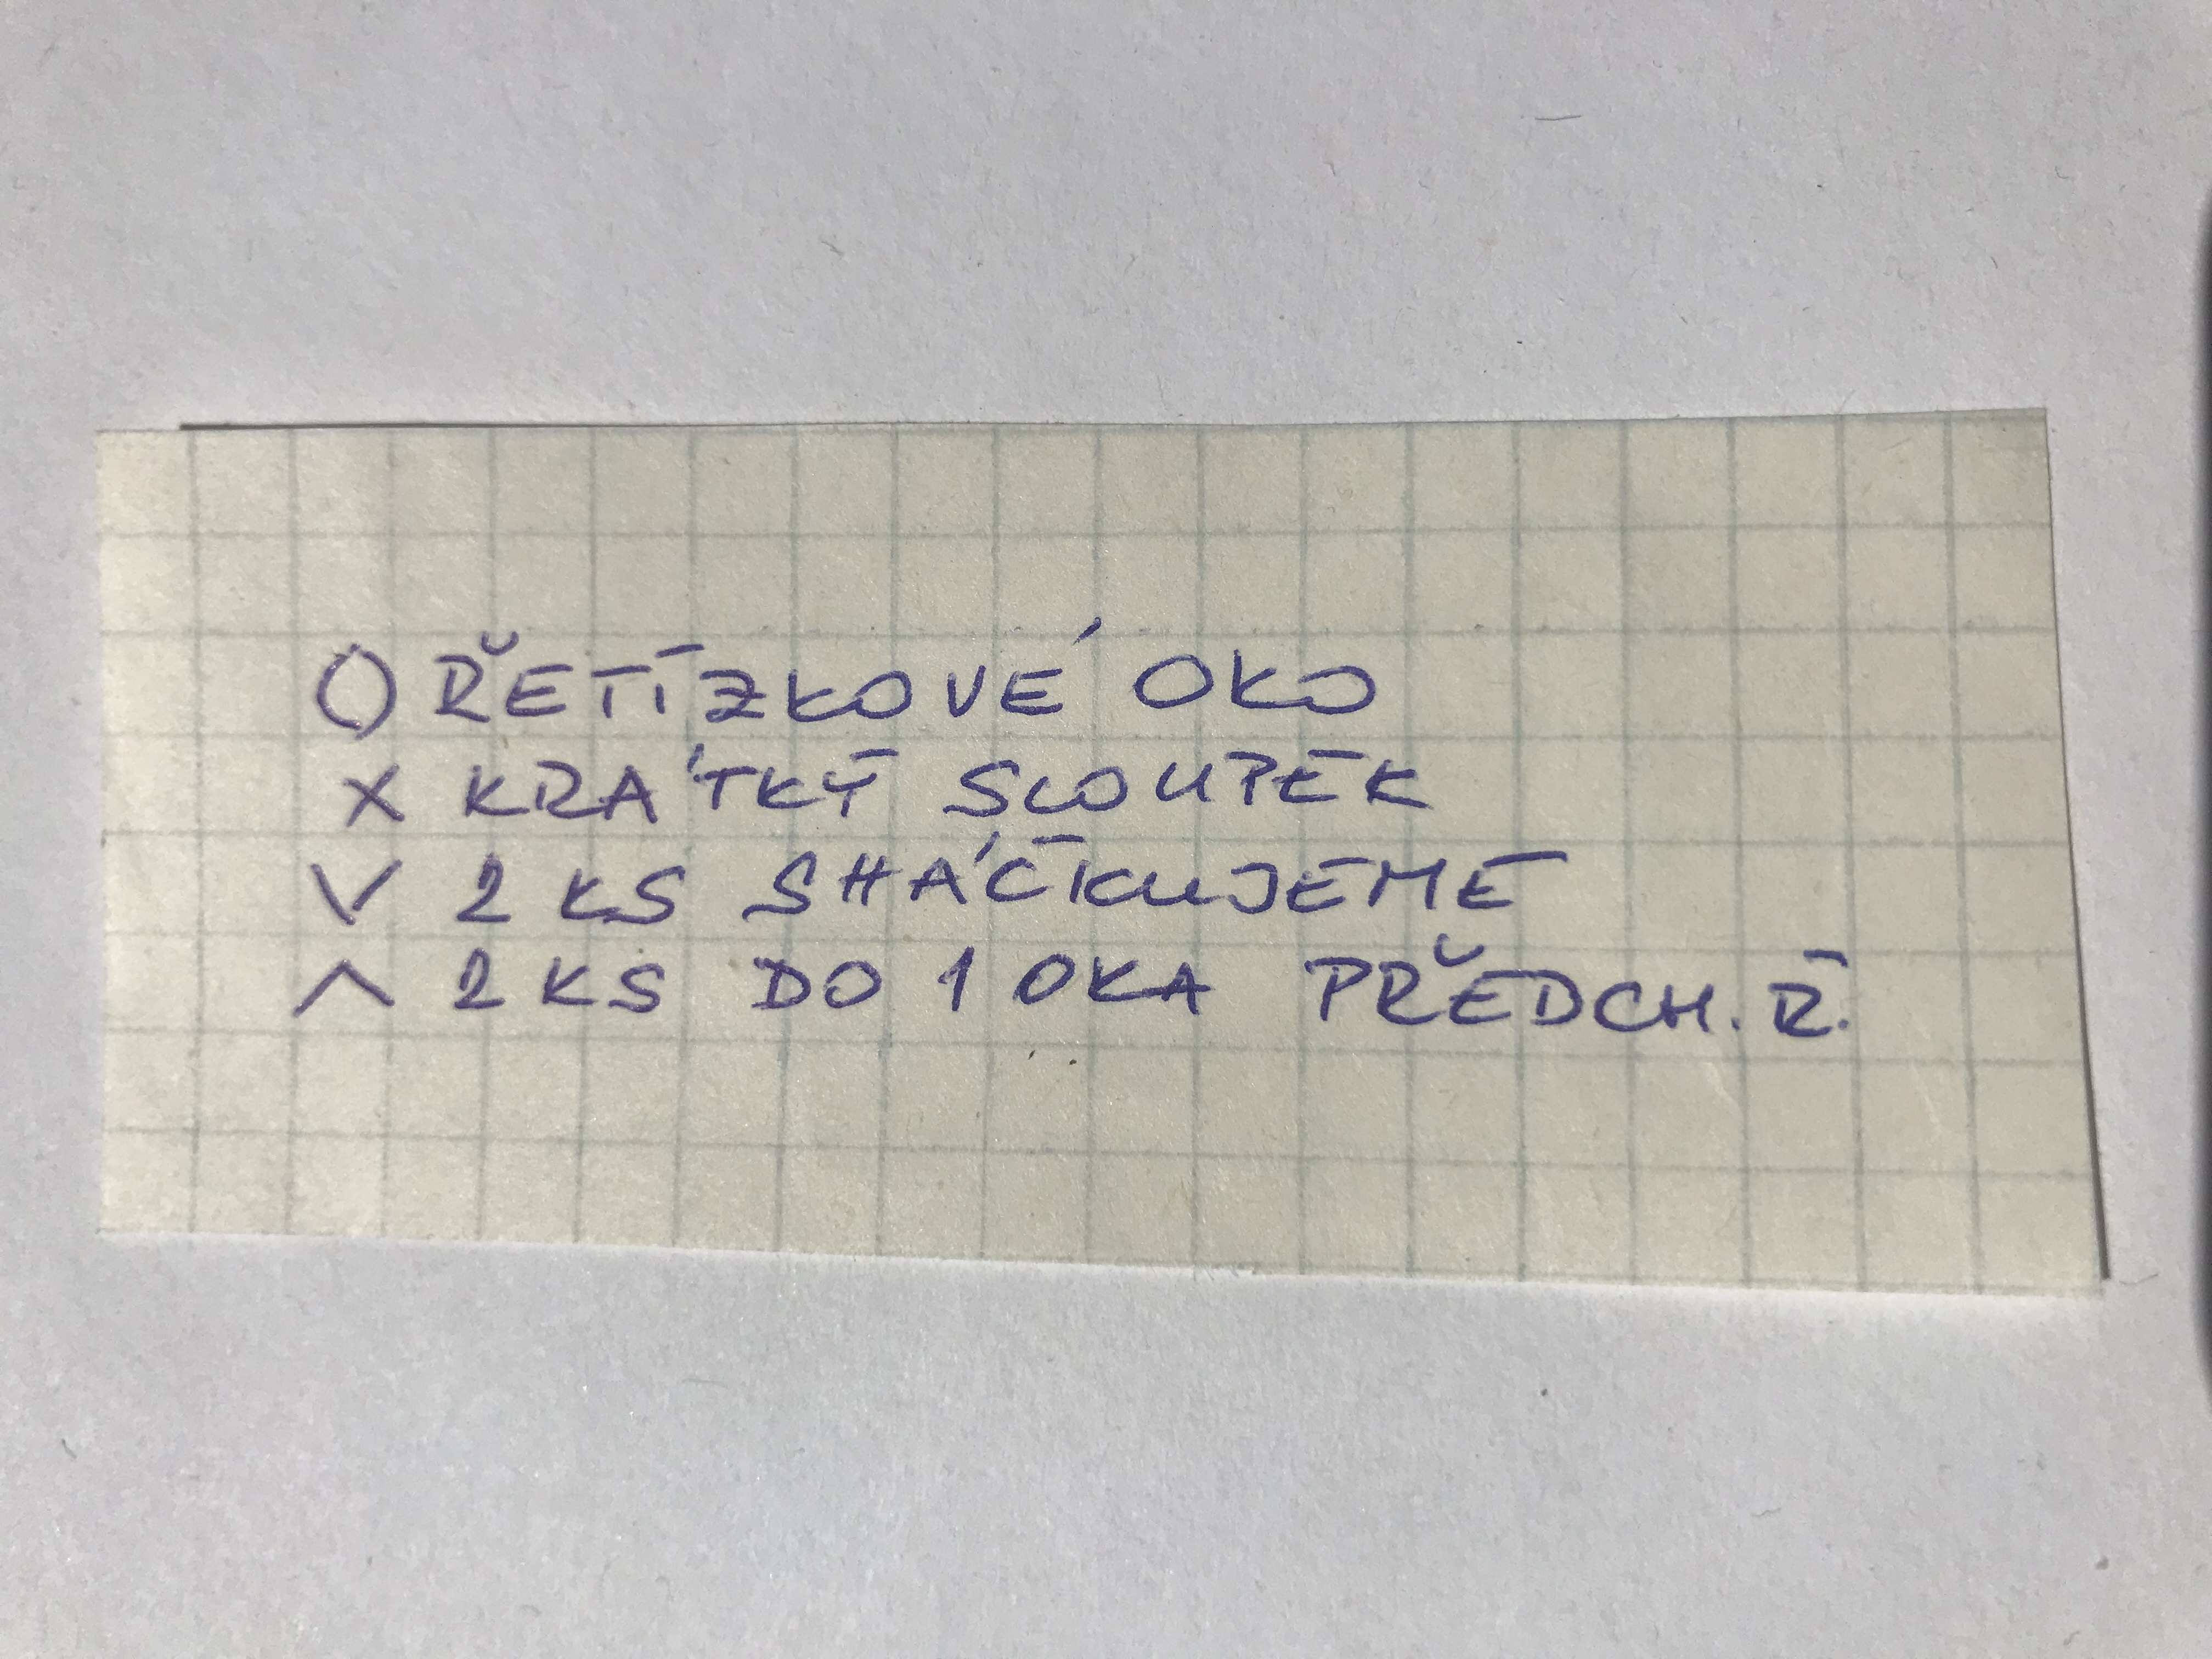 O ŘETÍZKOVÉ OKO
X KRÁTKÝ SLOUPEK
V 2 KS SHÁČKUJEME
Λ 2 KS DO 1 OKA PŘEDCH. Ř.